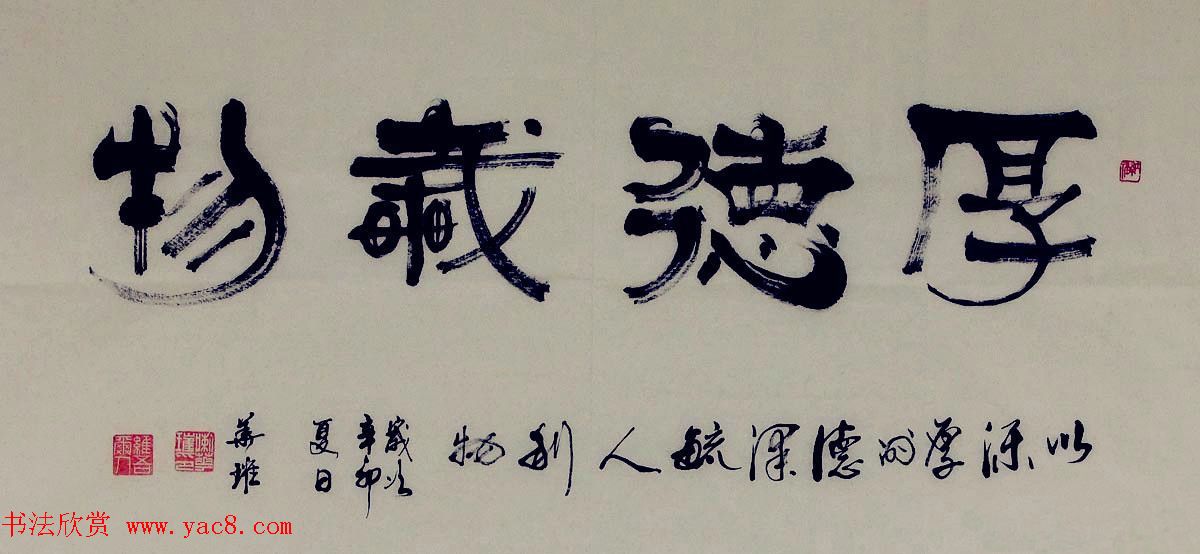 厚德载物
以深厚的德泽毓人利物
岁次
辛卯
夏日
华璀
书法欣赏 www.yac8.com